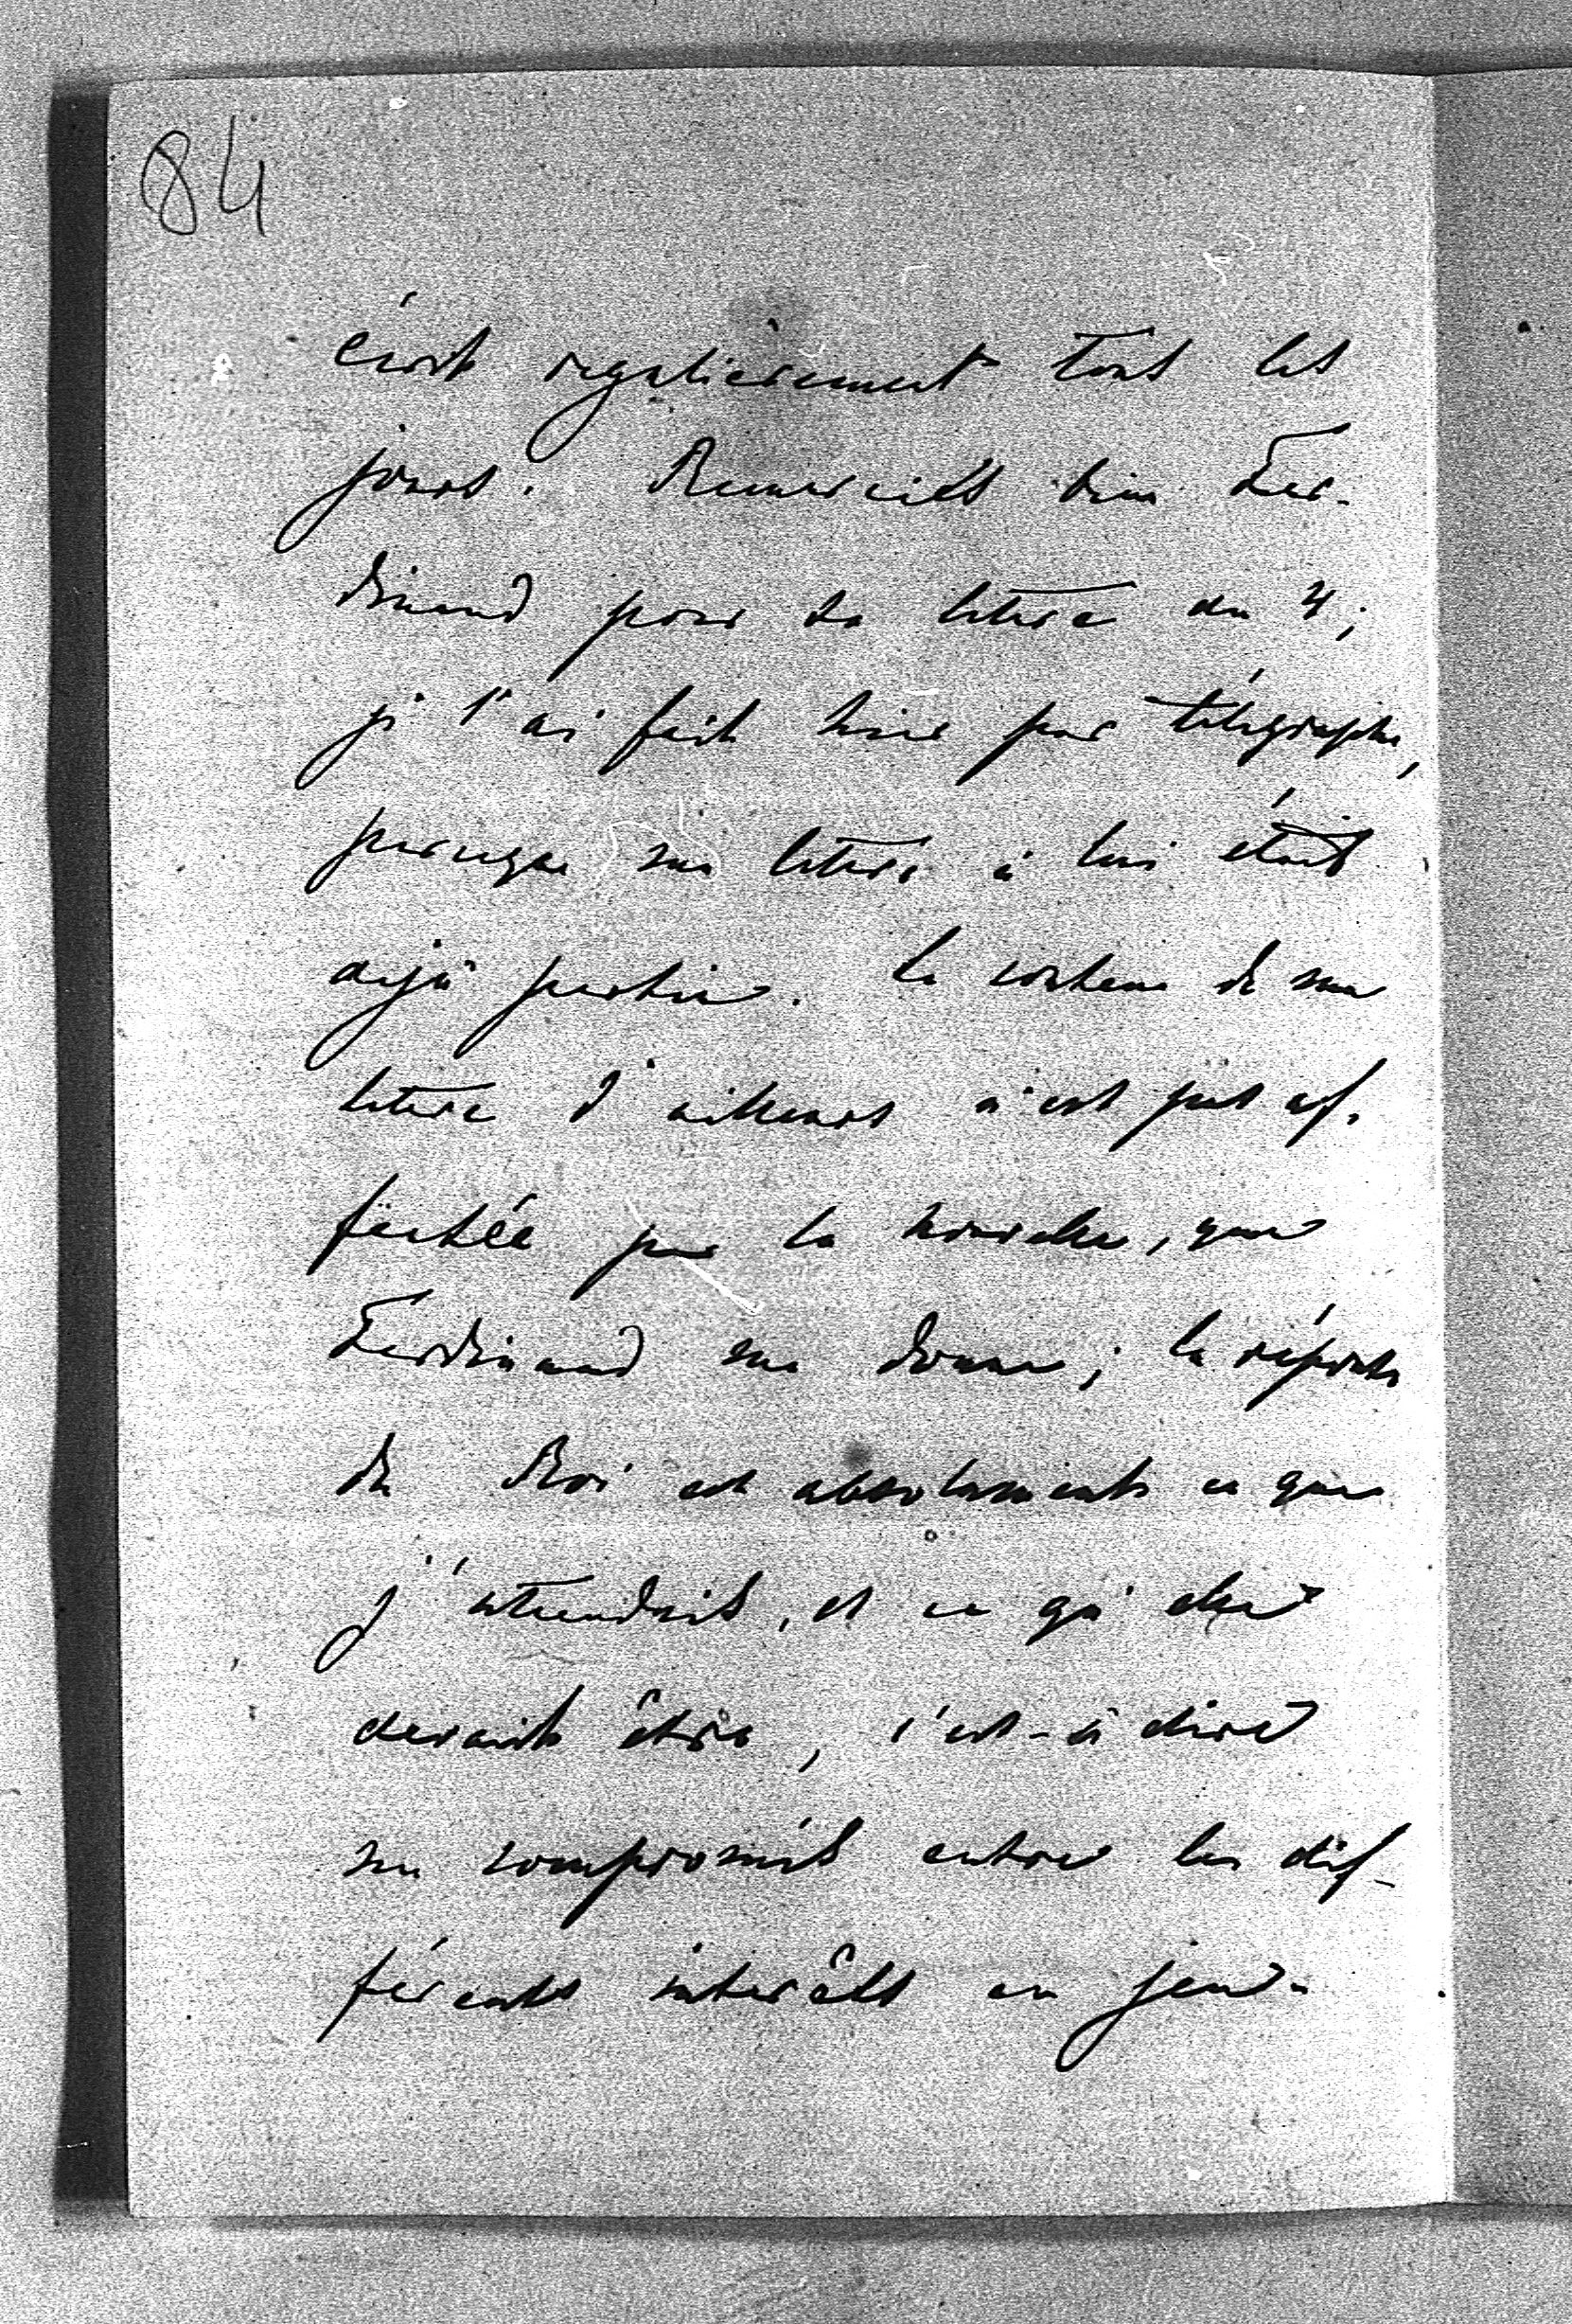 84
écrit regulièrement tous les
jours. Remerciés bien Fer-
dinand pour sa lettre du 4;
je l'ai fait hier par télégraphe,
parceque ma lettre à lui était
dejà partie. Le contenu de ma
lettre d'ailleurs n'est pas af-
fectée par la nouvelle, que
Ferdinand me donne; la réponse
du Roi est absolument ce que
j'attendais, et ce qu'elle
devait être, c'est-à dire
un compromis entre les dif-
férents interêts en jeu.